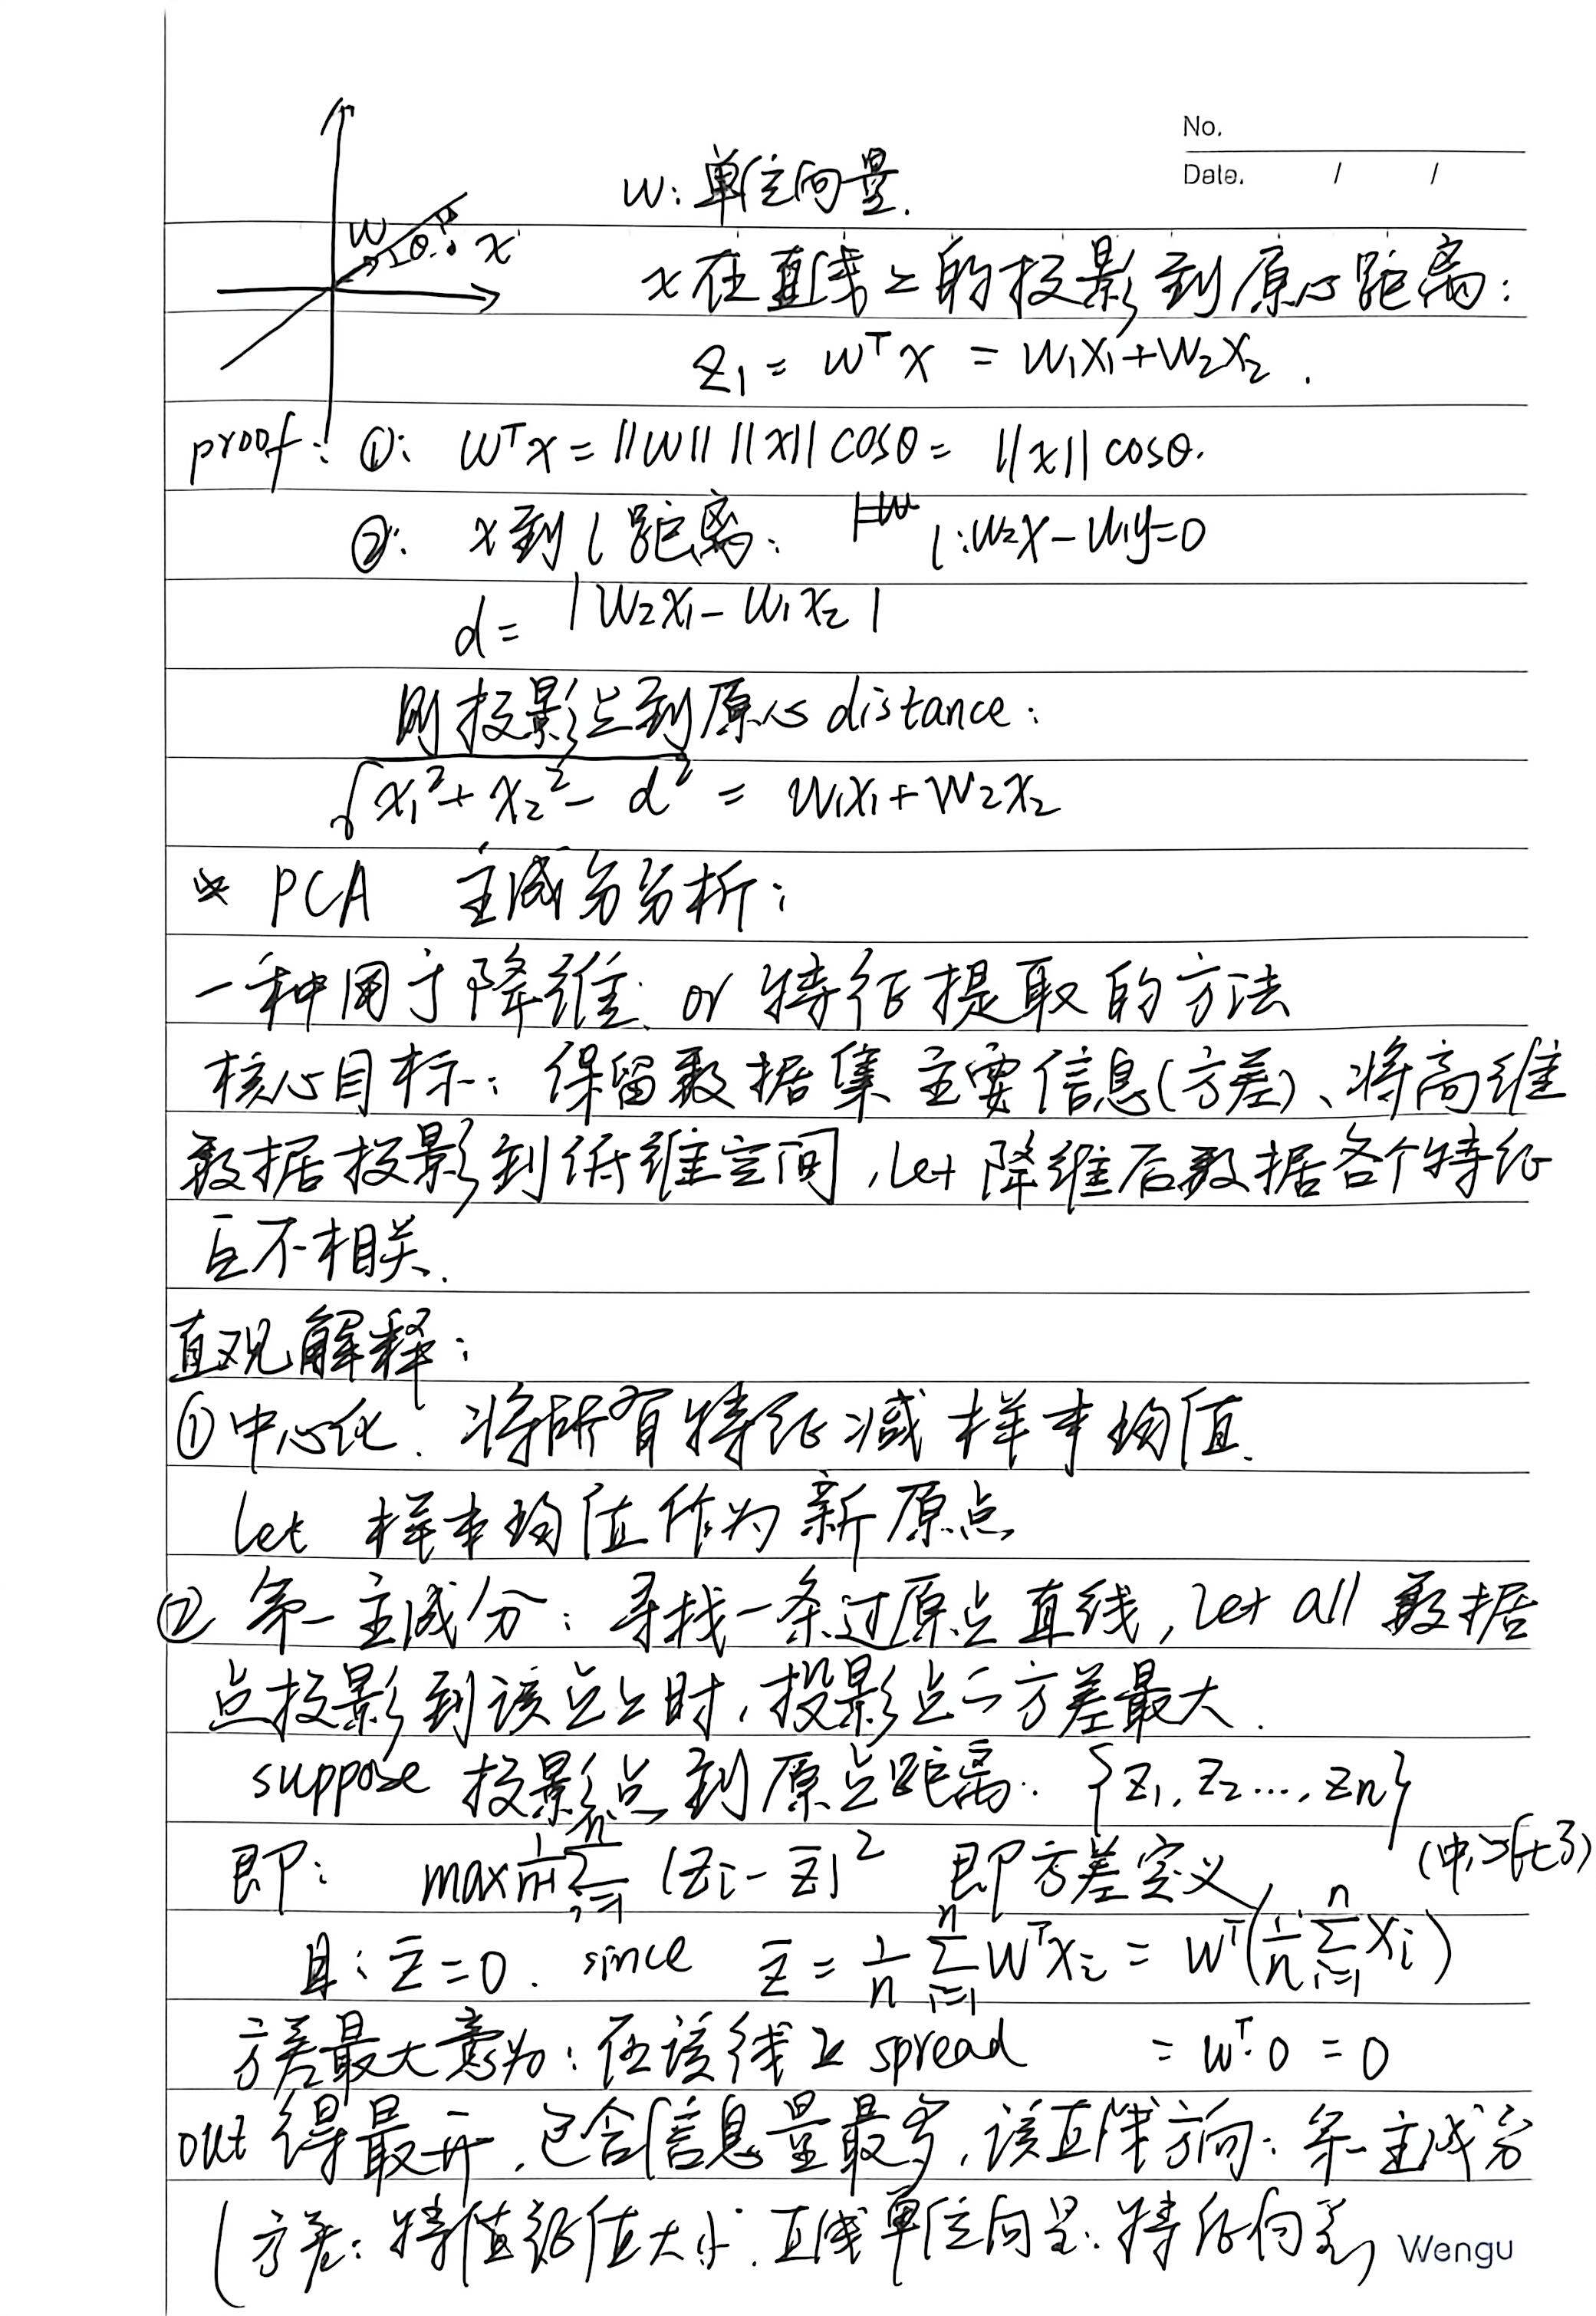 No.
Date. / /
w: 单位向量.
w θ x
x在直线上的投影到原心距离:
z₁ = wᵀx = w₁x₁+w₂x₂.
proof: ①: wᵀx = ||w|| ||x|| cosθ = ||x|| cosθ.
②: x到l距离: l:w₂x-w₁y=0
d= |w₂x₁-w₁x₂|
则投影点到原心distance:
√(x₁²+x₂²-d²) = w₁x₁+w₂x₂
* PCA 主成分分析:
一种用于降维 or 特征提取的方法
核心目标: 保留数据集主要信息(方差)、将高维
数据投影到低维空间, let 降维后数据各个特征
互不相关.
直观解释:
①中心化. 将所有特征减样本均值.
let 样本均值作为新原点
② 第一主成分: 寻找一条过原点直线, let all 数据
点投影到该点上时, 投影点之方差最大.
suppose 投影点到原点距离: {z₁, z₂..., zn}
即: max 1/(n-1) Σᵢ₌₁ⁿ (zᵢ- z̄)² 即方差定义 (中心化了)
且: z̄=0. since z̄ = 1/n Σᵢ₌₁ⁿ wᵀxᵢ = wᵀ(1/n Σᵢ₌₁ⁿ xᵢ)
方差最大意为: 在该线上 spread = wᵀ·0 = 0
out 得最开, 包含信息量最多, 该直线方向: 第一主成分
(方差: 特值征值大小. 直线单位向量: 特征向量)
Wengu